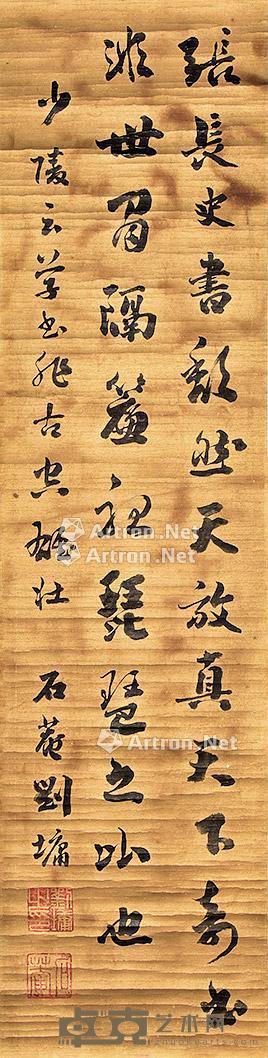 張長史書頹然天放真天下奇書
非世間隔簾聽琵琶之比也
少陵云草書非古空雄壯 石菴劉墉
劉墉之印
石菴
Artron.Net
Artron.Net
Artron.Net
卓克艺术网